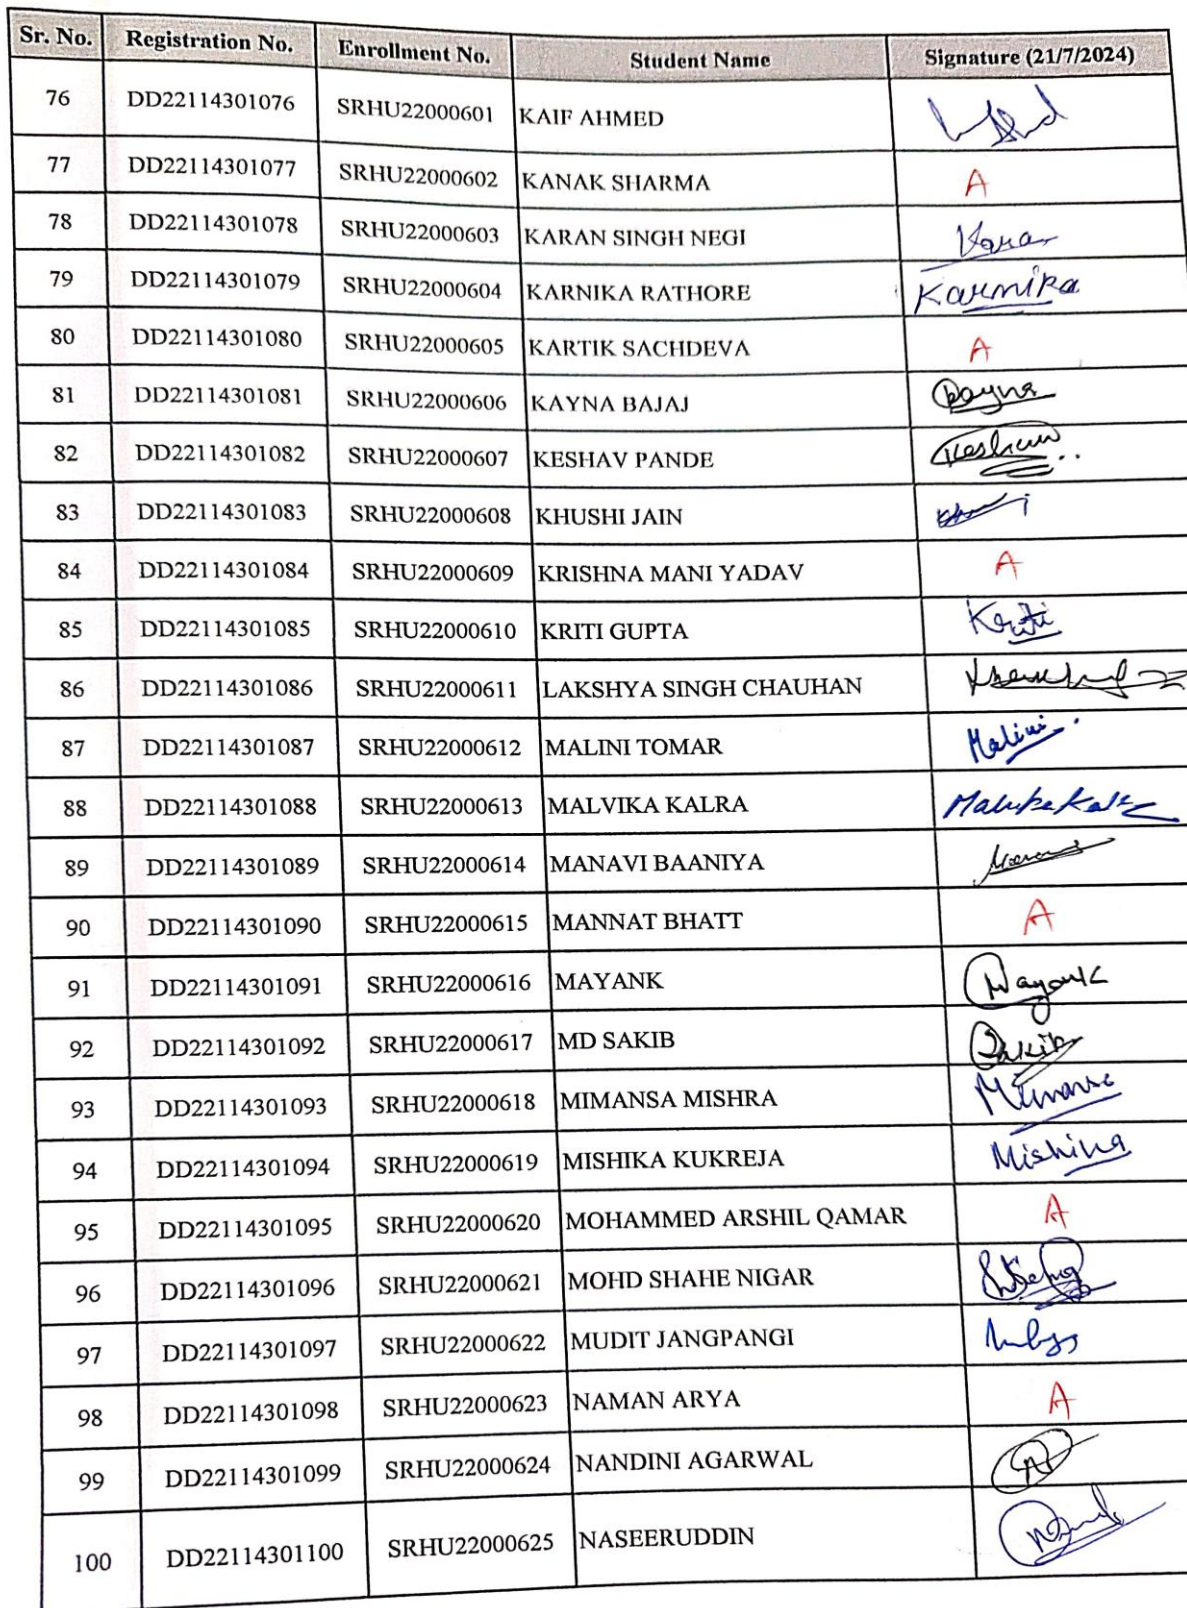 Sr. No. Registration No. Enrollment No. Student Name Signature (21/7/2024)
76 DD22114301076 SRHU22000601 KAIF AHMED
77 DD22114301077 SRHU22000602 KANAK SHARMA A
78 DD22114301078 SRHU22000603 KARAN SINGH NEGI Karan
79 DD22114301079 SRHU22000604 KARNIKA RATHORE Karnika
80 DD22114301080 SRHU22000605 KARTIK SACHDEVA A
81 DD22114301081 SRHU22000606 KAYNA BAJAJ Kayna
82 DD22114301082 SRHU22000607 KESHAV PANDE Keshav
83 DD22114301083 SRHU22000608 KHUSHI JAIN
84 DD22114301084 SRHU22000609 KRISHNA MANI YADAV A
85 DD22114301085 SRHU22000610 KRITI GUPTA Kriti
86 DD22114301086 SRHU22000611 LAKSHYA SINGH CHAUHAN
87 DD22114301087 SRHU22000612 MALINI TOMAR Malini
88 DD22114301088 SRHU22000613 MALVIKA KALRA Malvika Kalra
89 DD22114301089 SRHU22000614 MANAVI BAANIYA
90 DD22114301090 SRHU22000615 MANNAT BHATT A
91 DD22114301091 SRHU22000616 MAYANK Mayank
92 DD22114301092 SRHU22000617 MD SAKIB Sakib
93 DD22114301093 SRHU22000618 MIMANSA MISHRA Mimansa
94 DD22114301094 SRHU22000619 MISHIKA KUKREJA Mishika
95 DD22114301095 SRHU22000620 MOHAMMED ARSHIL QAMAR A
96 DD22114301096 SRHU22000621 MOHD SHAHE NIGAR
97 DD22114301097 SRHU22000622 MUDIT JANGPANGI
98 DD22114301098 SRHU22000623 NAMAN ARYA A
99 DD22114301099 SRHU22000624 NANDINI AGARWAL
100 DD22114301100 SRHU22000625 NASEERUDDIN